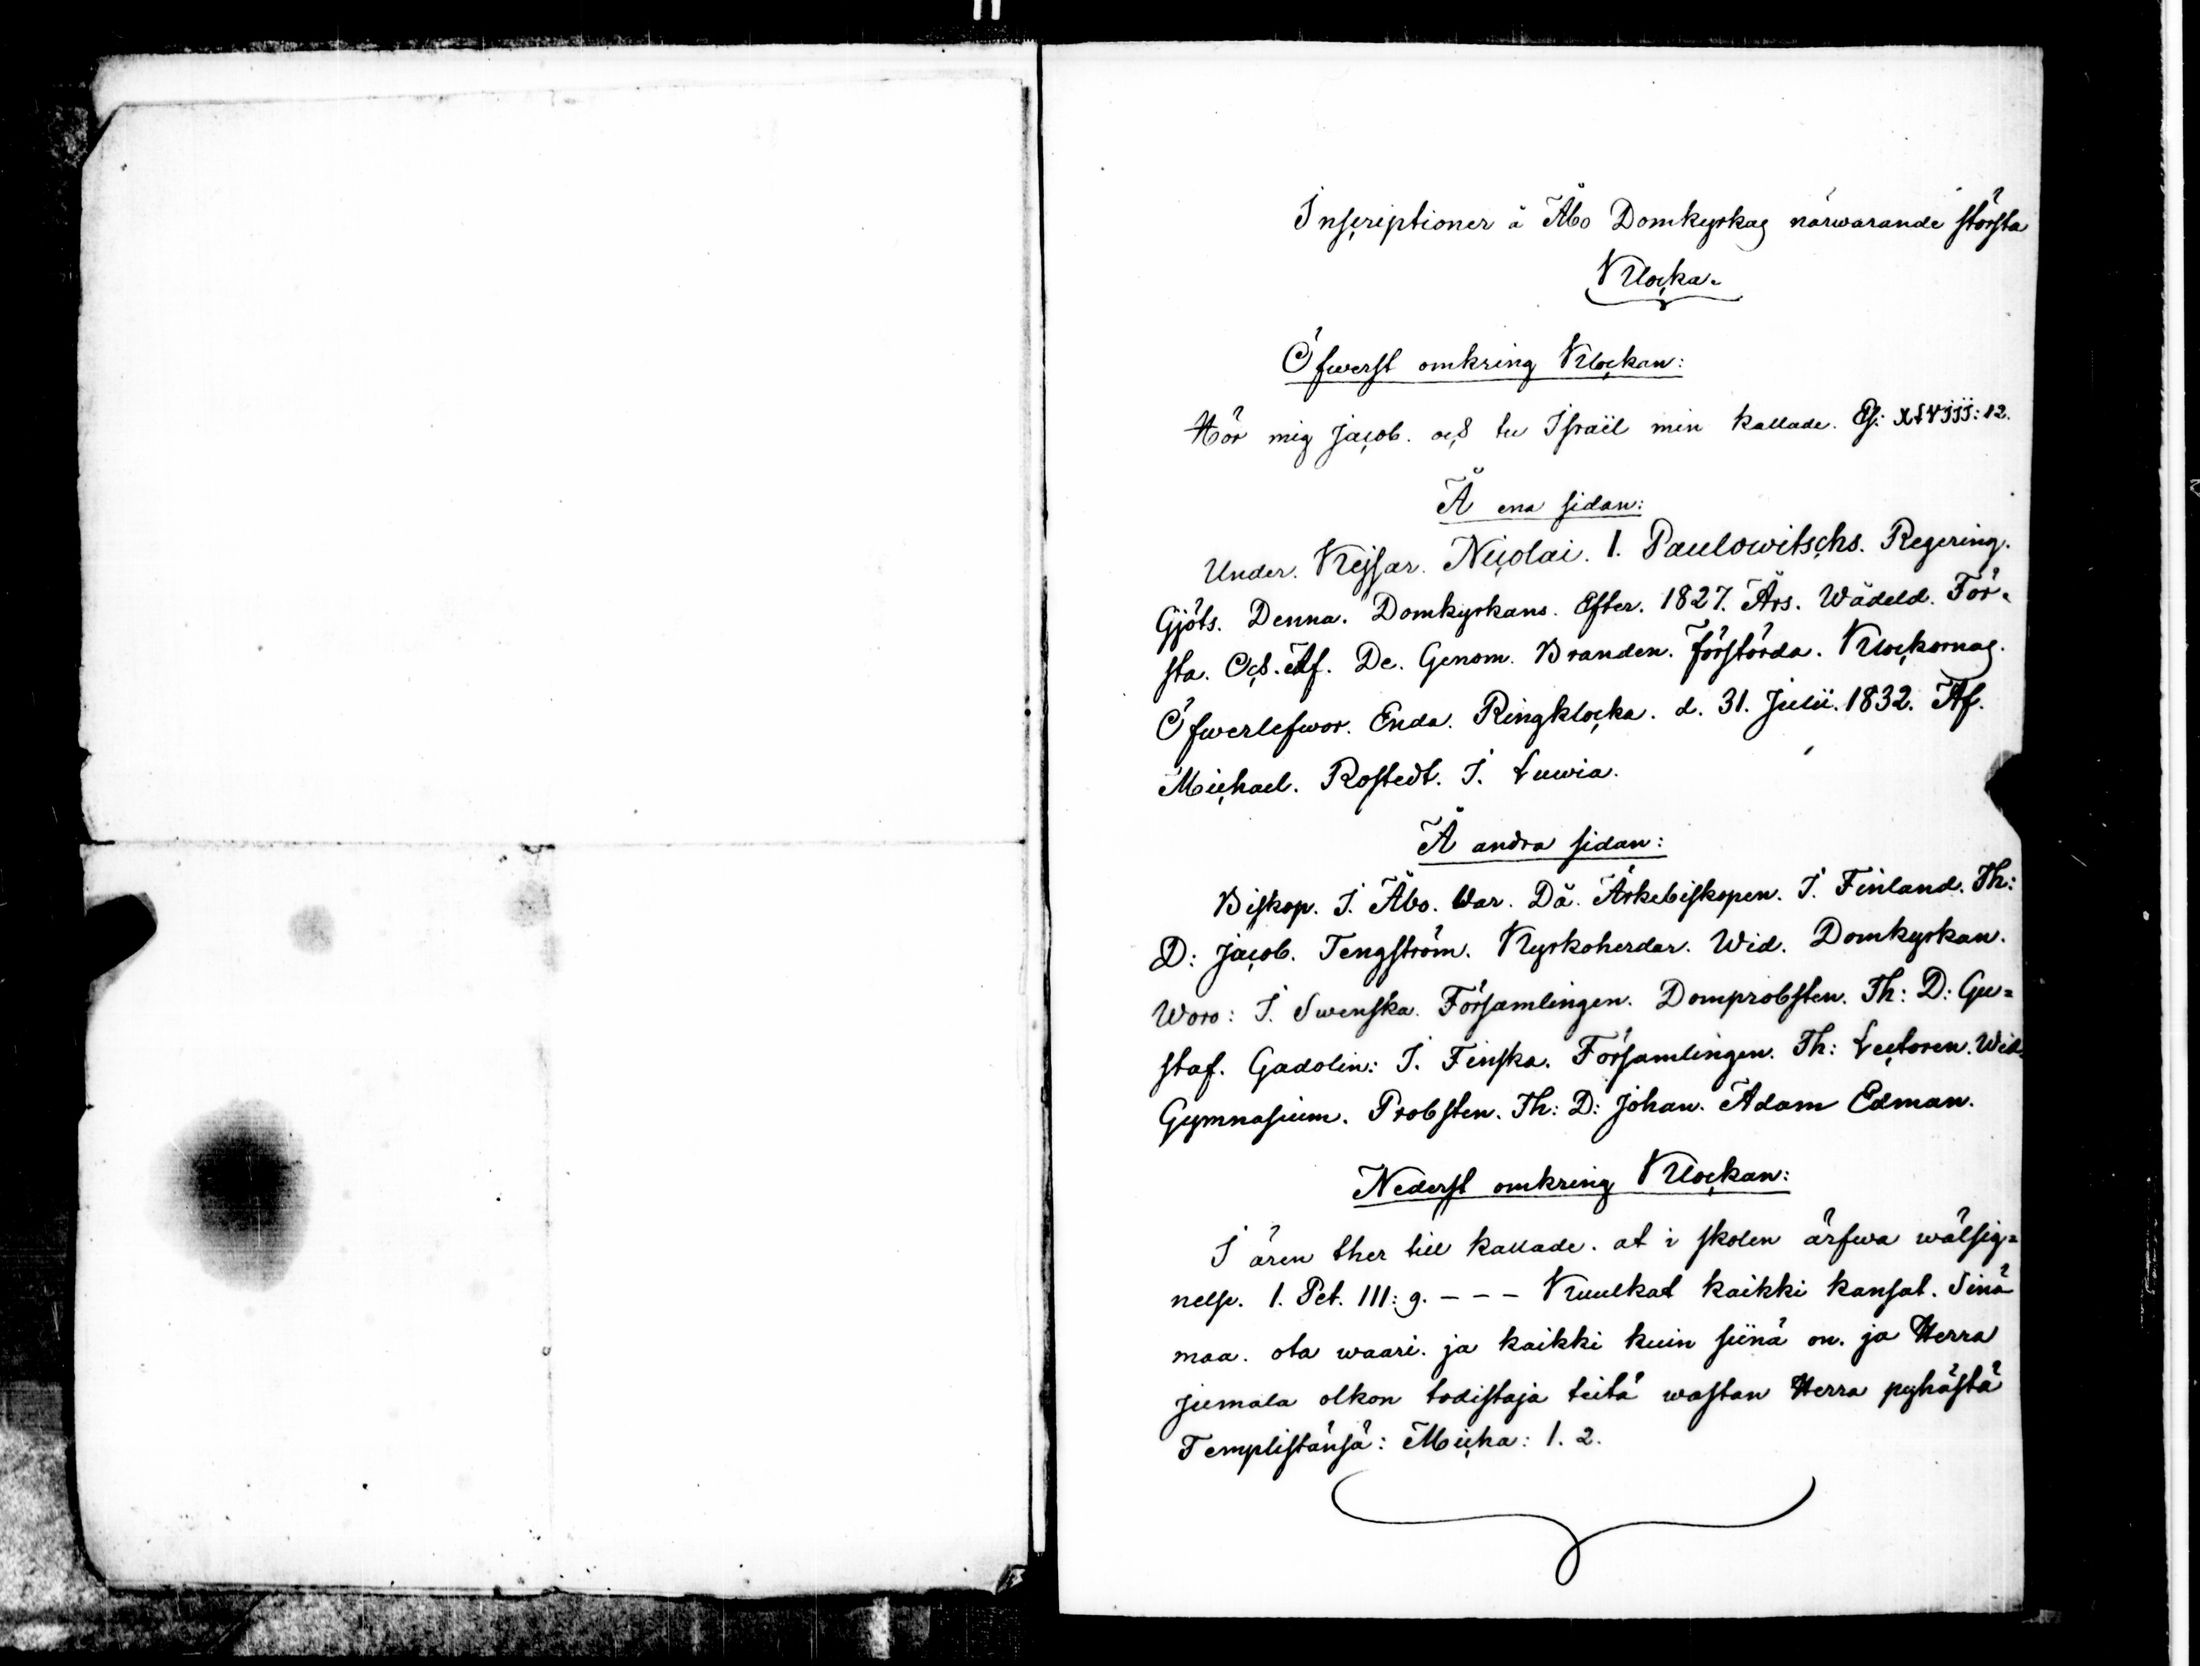 Inscriptioner å Åbo Domkyrkas närwarande största
Klocka.
Öfwerst omkring Klockan:
Hör mig Jacob. och tu Israël min kallade. Es: XLVIII: 12.
Å ena sidan:
Under. Kejsar. Nicolai. 1. Paulowitschs. Regering.
Gjöts. Denna. Domkyrkans. Efter. 1827. Års. Wådeld. För-
sta. Och. Af. De. Genom. Branden. förstörda. Klockornas.
Öfwerlefwor. Enda. Ringklocka. d. 31. Julii. 1832. Af.
Michael. Rostedt. I. Luwia.
Å andra sidan:
Biskop. I. Åbo. War. Då. Ärkebiskopen. I. Finland. Th:
D: Jacob. Tengström. Kyrkoherdar. Wid. Domkyrkan.
Woro: I. Swenska. Församlingen. Domprobsten. Th: D: Gu=
staf. Gadolin: I. Finska. Församlingen. Th: Lectoren. Wid.
Gymnasium. Probsten. Th: D: Johan. Adam Edman.
Nederst omkring Klockan:
I ären ther till kallade. at i skolen ärfwa wälsig=
nelse. 1. Pet. III: 9. - - - Kuulkat kaikki kansat. Sinä
maa. ota waari. ja kaikki kuin siinä on. ja Herra
Jumala olkon todistaja teitä wastan Herra pyhästä
Templistänsä: Micha: 1. 2.